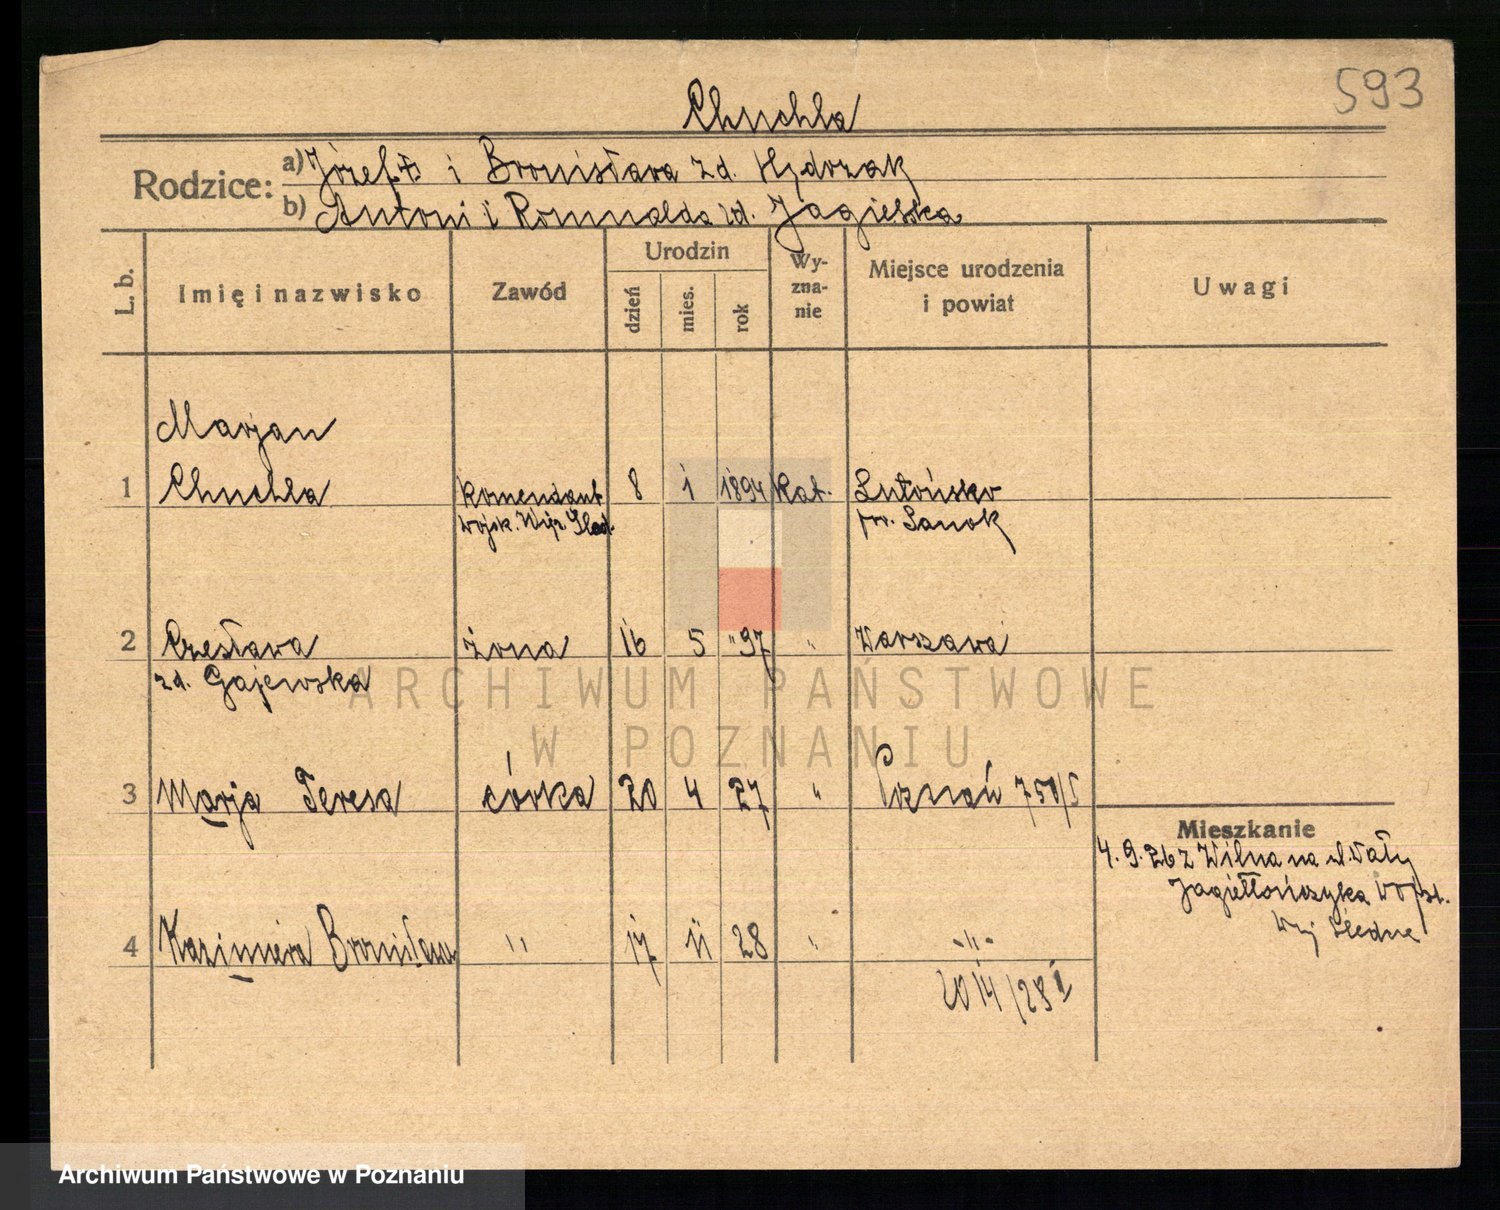 593
Chuchla
Rodzice: a) Józef i Bronisława zd. Hydrzak
b) Antoni i Romualda zd. Jagielska
L. b.
Imię i nazwisko
Zawód
Urodzin
dzień
mies.
rok
Wy-
zna-
nie
Miejsce urodzenia
i powiat
Uwagi
Marjan
1 Chuchla Komendant 8 1 1894 kat.
wojsk. Więz. Śled.
pow. Sanok
2 Czesława żona 16 5 " 97 " Warszawa
zd. Gajewska
3 Marja Teresa córka 20 4 27 " Poznań 750/5
Mieszkanie
4. 9. 26 z Wilna na ul. Wały
Jagiellończyka
Śledne
4 Kazimiera Bronisława " 17 11 28 " -"-
ARCHIWUM PAŃSTWOWE
W POZNANIU
Archiwum Państwowe w Poznaniu